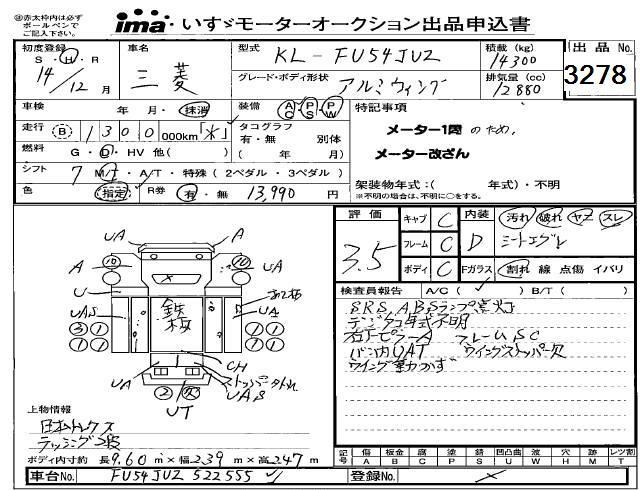 ※赤太枠内は必ずボールペンでご記入下さい。
ima いすゞモーターオークション出品申込書
初度登録 S・H・R 14/12月
車名 三菱
型式 KL-FU54JUZ
グレード・ボディ形状 アルミウィング
積載 (kg) 14300
排気量 (cc) 12880
出品 No. 3278
車検 年 月・抹消
装備 AC PS PW
特記事項
走行 (B) 1300 000km「*」
タコグラフ 有・無 別体 ( 年 月)
メーター1周のため、
メーター改ざん
燃料 G・D・HV 他( )
シフト 7 M/T・A/T・特殊 (2ペダル・3ペダル)
架装物年式:( 年式)・不明
※不明の場合は、不明に○をする。
色 (指定) R券 有・無 13,990 円
評価 3.5
キャブ C
フレーム C
ボディ C
内装 D 汚れ 破れ ヤニ スレ
シートエグレ
Fガラス 割れ 線 点傷 イバリ
検査員報告 A/C( ✓ ) B/T( )
SRS, ABSランプ点灯
デジタコ年式不明
フレームSC
バン内UAT ウイングストッパー欠
ウイング動つかず
UA A
A 10 10 UA
U
UAS 3 1 鉄板 UA 1 1
1 1 1 1
UA CH
UAS
2 欠
UT
上物情報
日本トレクス
ラッシング2段
ボディ内寸約 長9.60m×幅2.39m×高2.47m
記号 傷 A 板金 B 腐 C 塗 P サビ S 凹凸曲 U 波 W 穴 H 跡 M レツ割 T
車台No. FU54JUZ 522555
登録No.